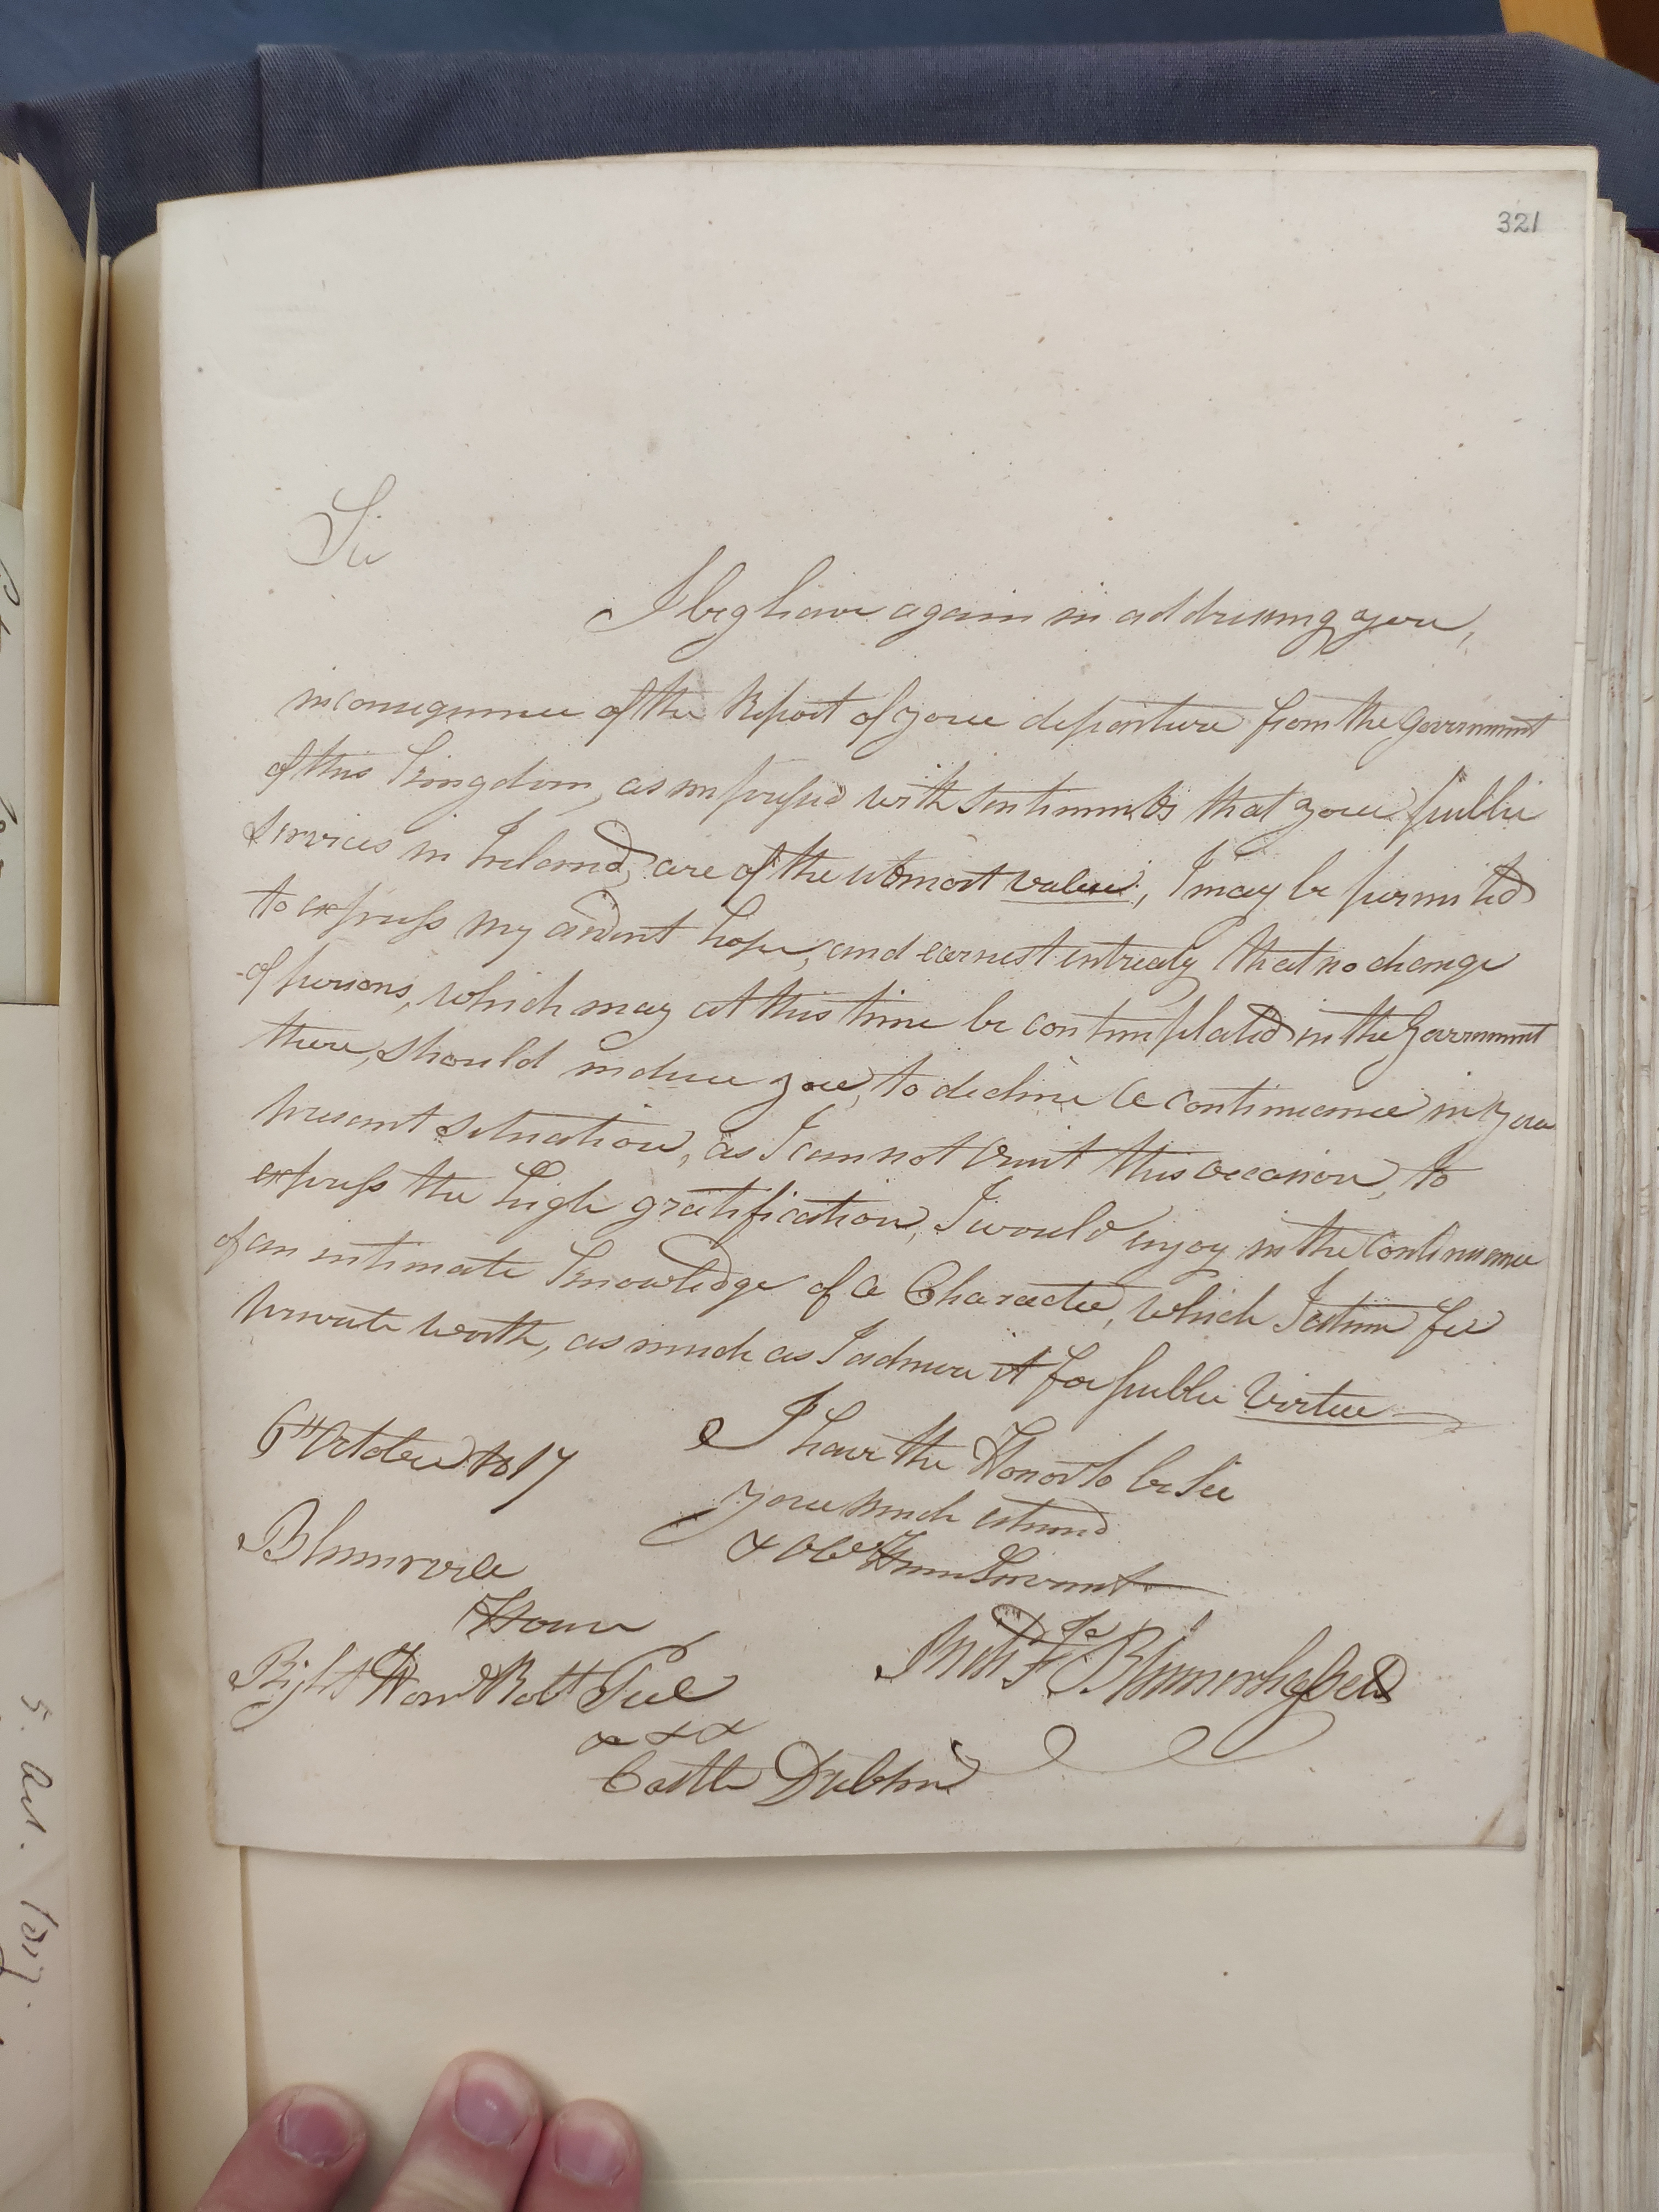 321
Sir
I beg leave again in addressing you,
in consequence of the Report of your departure from the Government
of this Kingdom, as impressed with sentiments that your public
services in Ireland, are of the utmost value, I may be permited
to express my ardent hope, and earnest entreaty that no change
of persons, which may at this time be contemplated in the Government
there, should induce you, to decline a continuance in your
present situation, as I cannot omit this occasion, to
express the high gratification, I would enjoy in the continuance
of an intimate knowledge of a Character, which I esteem for
private worth, as much as I admire it for public Virtue
6th October 1817
I have the Honor to be Sir
your much esteemed
& Obt Hum Servant
Blennerville
House
Right Hon Robt Peel
Blennerhassett
& & &
Castle Dublin
5. Oct. 1817.